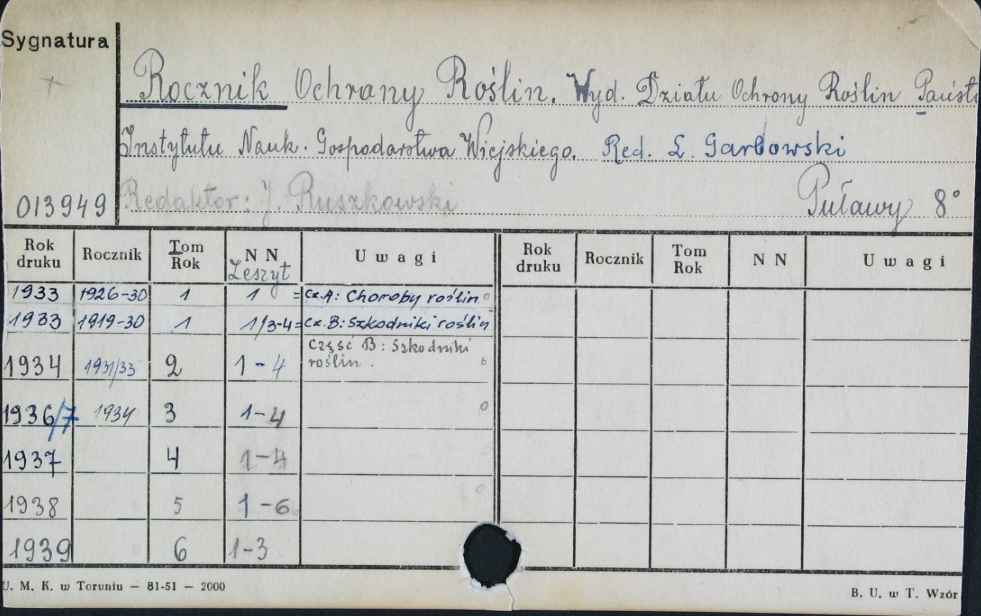 Sygnatura
Rocznik Ochrany Roślin. Wyd. Działu Ochrony Roślin Państ
Instytutu Nauk. Gospodarstwa Wiejskiego. Red. L. Garbowski
013949 Redaktor: J. Ruszkowski Puławy 8°
Rok druku Rocznik Tom Rok N N Zeszyt Uwagi Rok druku Rocznik Tom Rok N N Uwagi
1933 1926-30 1 1 = Cz. A: Choroby roślin
1933 1919-30 1 1/3-4 = Cz. B: Szkodniki roślin
1934 1931/33 2 1-4 Część B: Szkodniki roślin.
1936/7 1934 3 1-4
1937 4 1-4
1938 5 1-6
1939 6 1-3
U. M. K. w Toruniu — 81-51 — 2000 B. U. w T. Wzór